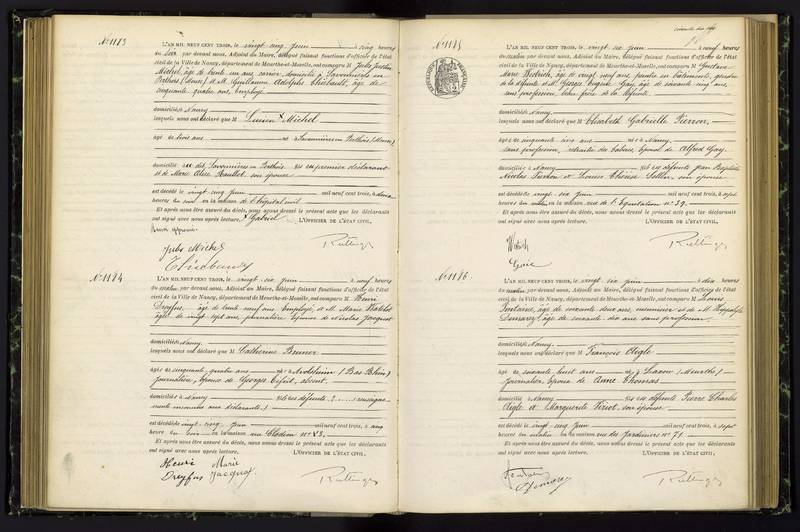 N° 1183
L'AN MIL NEUF CENT TROIS, le vingt cinq juin à cinq heures
du soir par devant nous, Adjoint au Maire, délégué faisant fonctions d'officier de l'état
civil de la Ville de Nancy, département de Meurthe-et-Moselle, ont comparu M Jules Justin
Michel, âgé de trente un ans, carrier, domicilié à Savonnières en
Perthois (Meuse) et M. Guillaume Adolphe Thiébault, âgé de
cinquante quatre ans, employé
domiciliés à Nancy
lesquels nous ont déclaré que M Lucien Michel
âgé de trois ans né à Savonnières en Perthois (Meuse)
domicilié au dit Savonnières en Perthois fils du premier déclarant
et de Marie Alice Raullet son épouse
est décédé le vingt cinq juin mil neuf cent trois, à
heures du soir en la maison de l'hôpital civil
Et après nous être assuré du décès, nous avons dressé le présent acte que les déclarants
ont signé avec nous après lecture. Gabriel L'OFFICIER DE L'ÉTAT CIVIL,
Jules Michel
N° 1184
L'AN MIL NEUF CENT TROIS, le vingt six juin à neuf heures
du matin, par devant nous, Adjoint au Maire, délégué faisant fonctions d'officier de l'état
civil de la Ville de Nancy, département de Meurthe-et-Moselle, ont comparu M Henri
Dreyfus, âgé de trente neuf ans, employé, et M. Marie
âgée de vingt sept ans, journalière, épouse de Nicolas Jacquot
domiciliés à Nancy
lesquels nous ont déclaré que M Catherine Brunner
âgée de cinquante quatre ans née à Avolsheim (Bas Rhin)
journalière, épouse de Georges absent.
domiciliée à Nancy fille des défunts ? (renseigne-
ments inconnus aux déclarants)
est décédée vingt cinq juin mil neuf cent trois, à cinq
heures du soir en la maison rue Clodion n° 23
Et après nous être assuré du décès, nous avons dressé le présent acte que les déclarants
ont signé avec nous après lecture. L'OFFICIER DE L'ÉTAT CIVIL,
Henri Marie
Dreyfus Jacquot
N° 1185
RÉPUBLIQUE FRANÇAISE
L'AN MIL NEUF CENT TROIS, le vingt six juin à neuf heures
du matin par devant nous, Adjoint au Maire, délégué faisant fonctions d'officier de l'état
civil de la Ville de Nancy, département de Meurthe-et-Moselle, ont comparu M Gustave
Marie âgé de vingt neuf ans, peintre en bâtiments, gendre
de la défunte et M. Georges Eugène Gay, âgé de soixante cinq ans,
sans profession, beau frère de la défunte
domiciliés à Nancy
lesquels nous ont déclaré que M Elisabeth Gabrielle Pierron,
âgée de cinquante cinq ans née à Nancy
sans profession, retraitée des tabacs, épouse de Alfred Gay.
domiciliée à Nancy fille des défunts Jean Baptiste
Nicolas Pierron et Louise Thérèse son épouse
est décédée vingt six juin mil neuf cent trois, à sept
heures du matin en la maison rue de l'Equitation n° 39.
Et après nous être assuré du décès, nous avons dressé le présent acte que les déclarants
ont signé avec nous après lecture. L'OFFICIER DE L'ÉTAT CIVIL,
N° 1186
L'AN MIL NEUF CENT TROIS, le vingt six juin à dix heures
du matin par devant nous, Adjoint au Maire, délégué faisant fonctions d'officier de l'état
civil de la Ville de Nancy, département de Meurthe-et-Moselle, ont comparu M Louis
Fontaine, âgé de soixante deux ans, menuisier et de M. Hippolyte
âgé de soixante dix ans sans profession
domiciliés à Nancy
lesquels nous ont déclaré que M François Aigle
âgé de soixante huit ans né à Laxou (Meurthe)
journalier, époux de Anne Thomas
domicilié à Nancy fils des défunts Pierre Charles
Aigle et Marguerite son épouse
est décédé le vingt cinq juin mil neuf cent trois, à sept
heures du matin en la maison rue des Jardiniers n° 71.
Et après nous être assuré du décès, nous avons dressé le présent acte que les déclarants
ont signé avec nous après lecture. L'OFFICIER DE L'ÉTAT CIVIL,